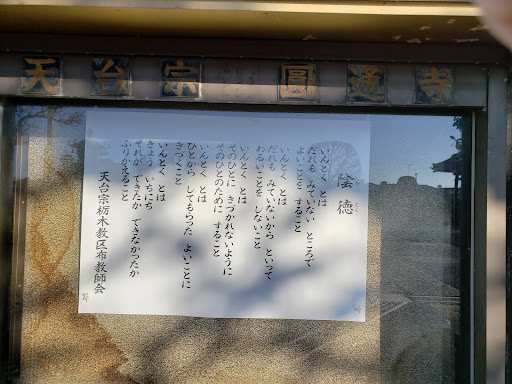 天台宗 圓通寺
陰徳
いん とく
いんとく とは
だれも みていない ところで
よいことを すること
いんとく とは
だれも みていないから といって
わるいことを しないこと
いんとく とは
そのひとに きづかれないように
そのひとのために すること
いんとく とは
ひとから してもらった よいことに
きづくこと
いんとく とは
きょう いちにち
それが できたか できなかったか
ふりかえること
天台宗栃木教区布教師会